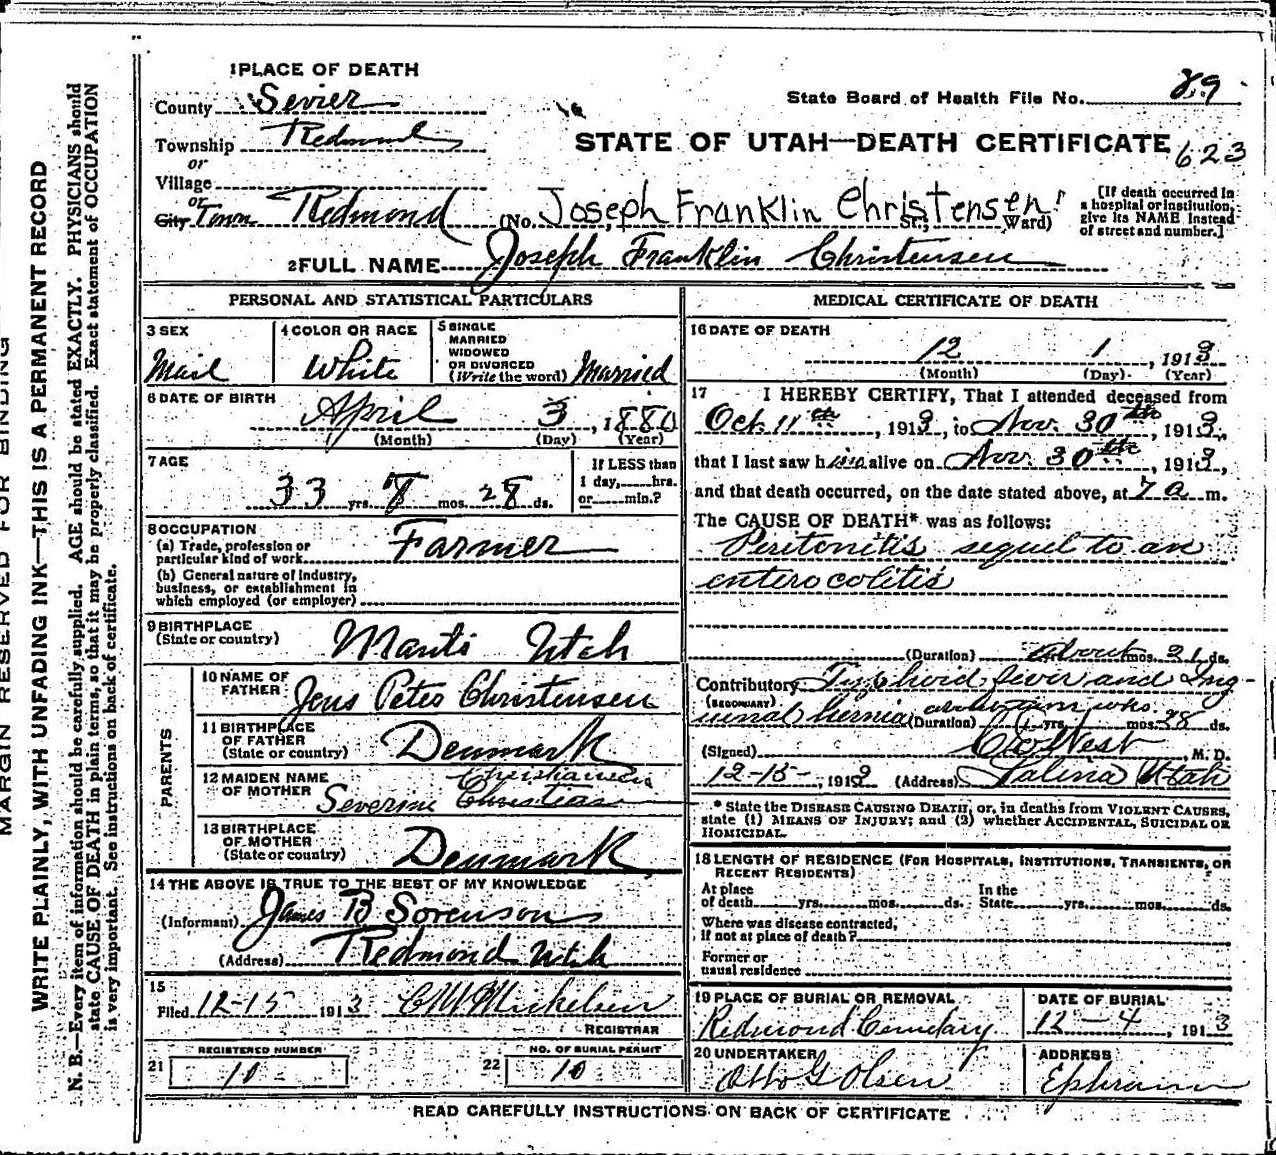 1 PLACE OF DEATH
County Sevier
Township Redmond
or
Village
or
City Town Redmond
(No. Joseph Franklin Christensen St.; Ward)
State Board of Health File No. 29
STATE OF UTAH—DEATH CERTIFICATE 623
[If death occurred in
a hospital or institution,
give its NAME instead
of street and number.]
2 FULL NAME Joseph Franklin Christensen
PERSONAL AND STATISTICAL PARTICULARS
3 SEX
Mail
4 COLOR OR RACE
White
5 SINGLE
MARRIED
WIDOWED
OR DIVORCED
(Write the word) Married
6 DATE OF BIRTH
April 3, 1880
(Month) (Day) (Year)
7 AGE
33 yrs. 8 mos. 28 ds.
If LESS than
1 day, hrs.
or min.?
8 OCCUPATION
(a) Trade, profession or
particular kind of work Farmer
(b) General nature of industry,
business, or establishment in
which employed (or employer)
9 BIRTHPLACE
(State or country) Manti Utah
PARENTS
10 NAME OF
FATHER Jens Peter Christensen
11 BIRTHPLACE
OF FATHER
(State or country) Denmark
12 MAIDEN NAME
OF MOTHER
Severine
13 BIRTHPLACE
OF MOTHER
(State or country) Denmark
14 THE ABOVE IS TRUE TO THE BEST OF MY KNOWLEDGE
(Informant) James B Sorenson
(Address) Redmond Utah
15
Filed 12-15 1913 C W Mickelsen
REGISTRAR
21 REGISTERED NUMBER
10
22 NO. OF BURIAL PERMIT
10
MEDICAL CERTIFICATE OF DEATH
16 DATE OF DEATH
12 1, 1913
(Month) (Day) (Year)
17 I HEREBY CERTIFY, That I attended deceased from
Oct. 11th, 1913, to Nov. 30th, 1913,
that I last saw him alive on Nov. 30th, 1913,
and that death occurred, on the date stated above, at 7 a m.
The CAUSE OF DEATH* was as follows:
Peritonitis sequel to an
enterocolitis
(Duration) about mos. 21 ds.
Contributory Typhoid fever and Ing-
(SECONDARY)
uinal hernia (Duration) yrs. mos. 28 ds.
(Signed) West, M. D.
12-15-, 1913 (Address) Salina Utah
* State the DISEASE CAUSING DEATH, or, in deaths from VIOLENT CAUSES,
state (1) MEANS OF INJURY; and (2) whether ACCIDENTAL, SUICIDAL OR
HOMICIDAL.
18 LENGTH OF RESIDENCE (FOR HOSPITALS, INSTITUTIONS, TRANSIENTS, OR
RECENT RESIDENTS)
At place
of death yrs. mos. ds.
In the
State yrs. mos. ds.
Where was disease contracted,
if not at place of death?
Former or
usual residence
19 PLACE OF BURIAL OR REMOVAL
Redmond Cemetary
DATE OF BURIAL
12-4, 1913
20 UNDERTAKER
Otto G Olsen
ADDRESS
Ephraim
READ CAREFULLY INSTRUCTIONS ON BACK OF CERTIFICATE
MARGIN RESERVED FOR BINDING
WRITE PLAINLY, WITH UNFADING INK—THIS IS A PERMANENT RECORD
N. B.—Every item of information should be carefully supplied. AGE should be stated EXACTLY. PHYSICIANS should
state CAUSE OF DEATH in plain terms, so that it may be properly classified. Exact statement of OCCUPATION
is very important. See instructions on back of certificate.